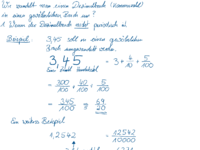 Wie wandelt man einen Dezimalbruch (Kommazahl)
in einen gewöhnlichen Bruch um?
1. Wenn der Dezimalbruch nicht periodisch ist.
Beispiel 3,45 soll in einen gewöhnlichen
Bruch umgewandelt werden.
3,45 = 3 + 4/10 + 5/100
= 300/100 + 40/100 + 5/100
= 345/100 = 69/20
Ein weiteres Beispiel
1,2542 = 12542/10000